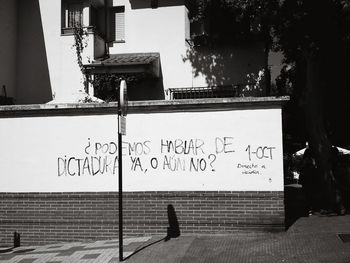 ¿PODEMOS HABLAR DE
DICTADURA YA, O AÚN NO?
1-OCT
Derecho a
decidir